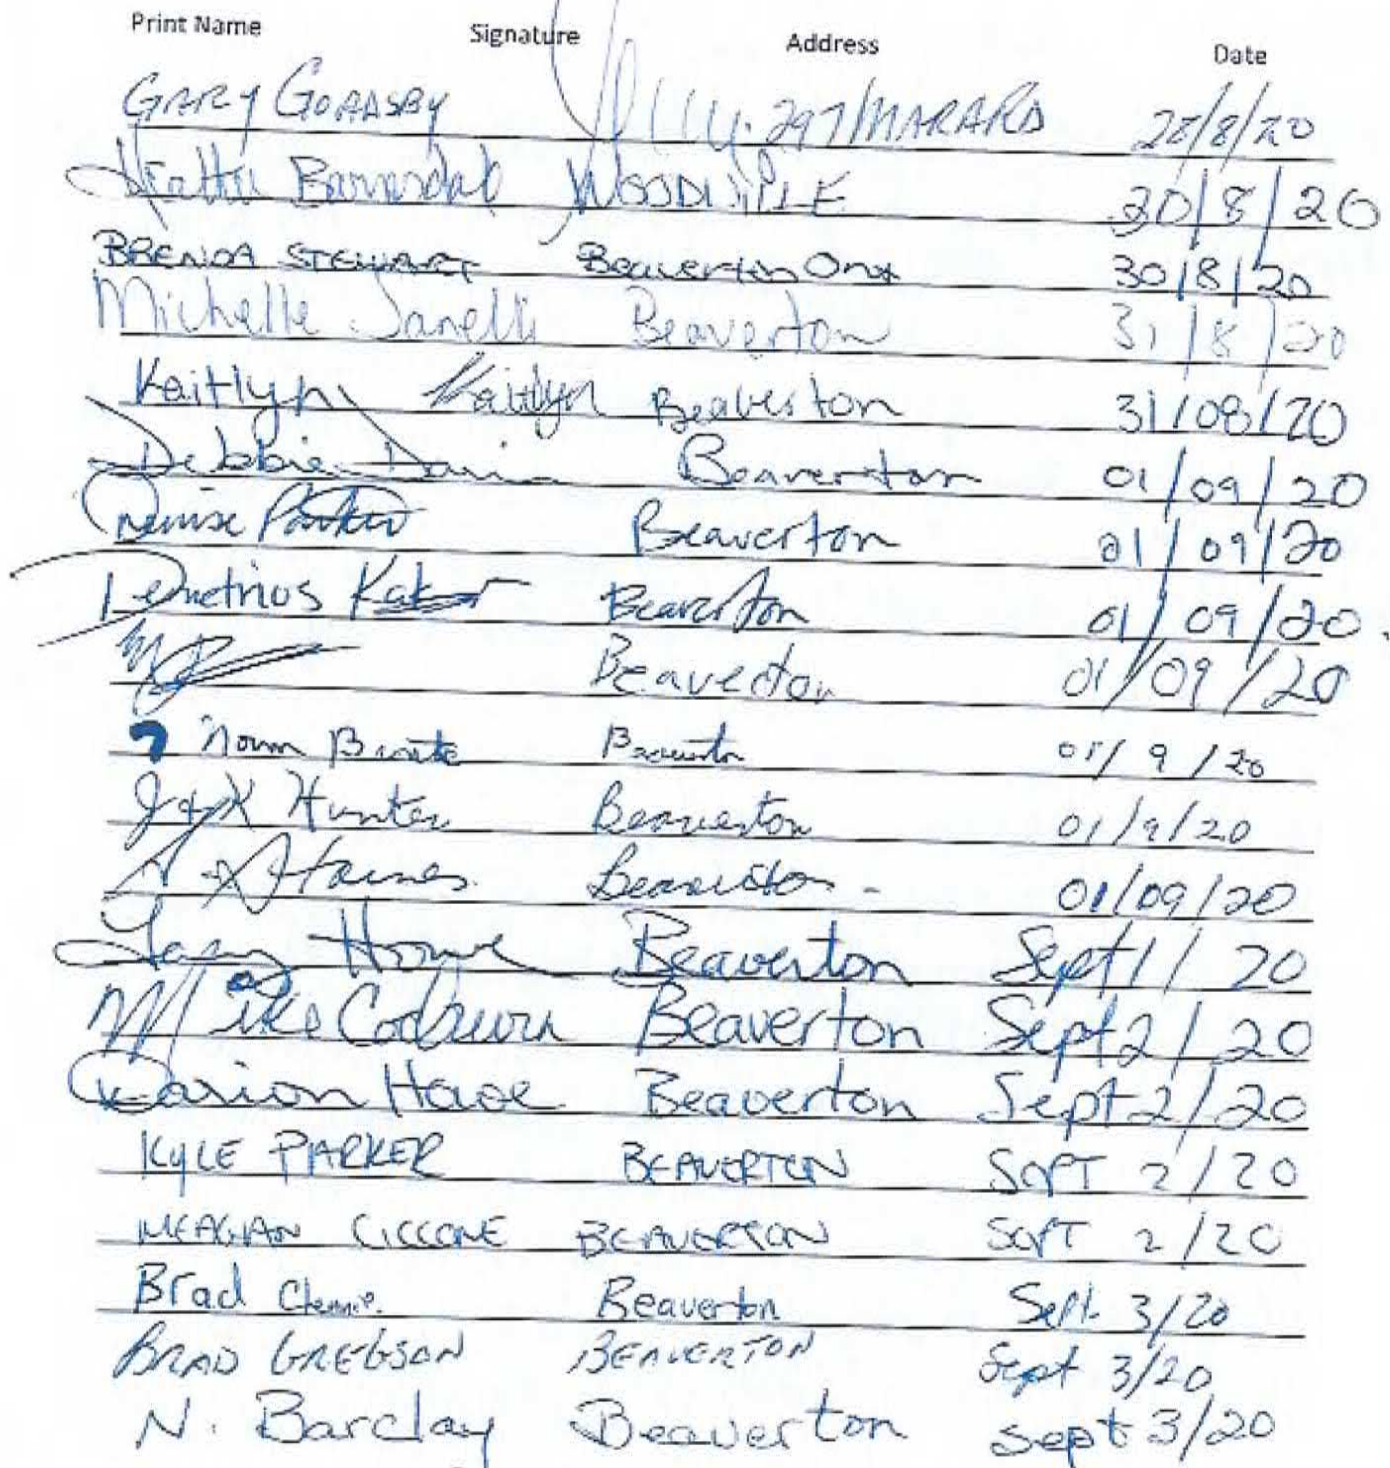 Print Name Signature Address Date
GARY GOADSBY 297 MARARD 28/8/20
WOODVILLE 30/8/20
BRENDA STEWART Beaverton Ont 30/8/20
Michelle Janelli Beaverton 31/8/20
Kaitlyn Kaitlyn Beaverton 31/08/20
Debbie Beaverton 01/09/20
Denise Parker Beaverton 01/09/20
Demetrios Beaverton 01/09/20.
Beaverton 01/09/20
Norm Beaverton 01/9/20
J & K Hunter Beaverton 01/9/20
Haines Beaverton - 01/09/20
Beaverton Sept 1/20
Mike Beaverton Sept 2/20
Beaverton Sept 2/20
KYLE PARKER BEAVERTON SEPT 2/20
MEAGHAN CICCONE BEAVERTON SEPT 2/20
Brad Beaverton Sept. 3/20
BRAD GREGSON BEAVERTON Sept 3/20
N. Barclay Beaverton Sept 3/20